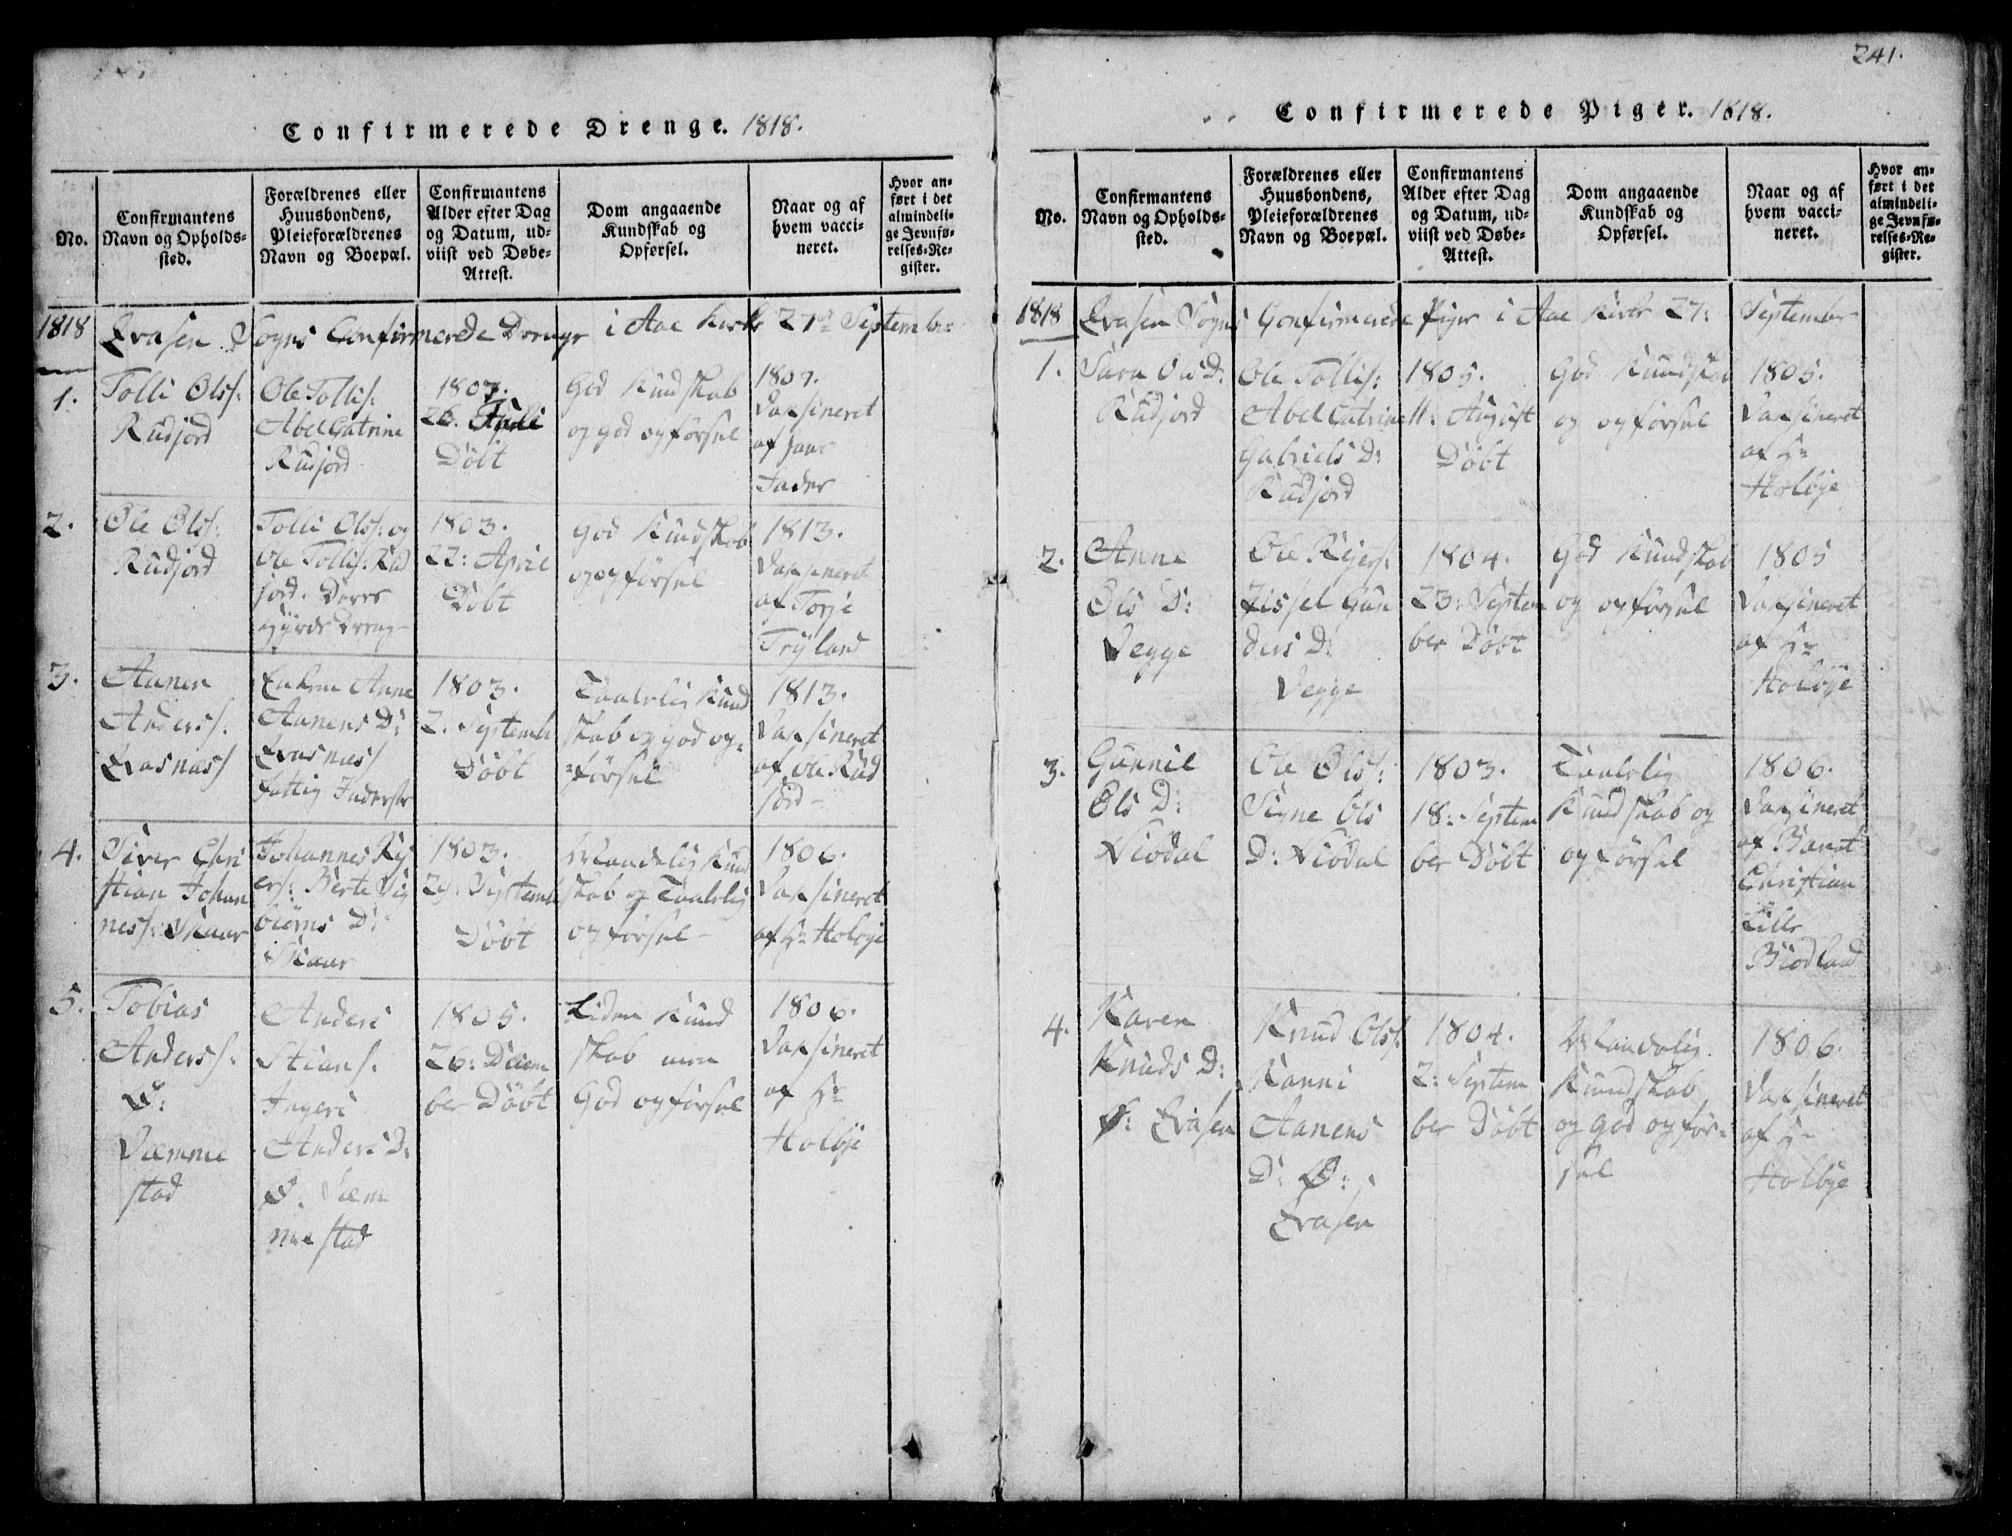 241.
Confirmerede Drenge. 1818.
No.
Confirmantens
Navn og Opholds-
sted.
Forældrenes eller
Huusbondens,
Pleieforældrenes
Navn og Boepæl.
Confirmantens
Alder efter Dag
og Datum, ud-
viist ved Døbe-
Attest.
Dom angaaende
Kundskab og
Opførsel.
Naar og af
hvem vacci-
neret.
Hvor an-
ført i det
almindeli-
ge Jevnfø-
relses-Re-
gister.
1818 Qvasen Sogns Confirmerede Drenge i Aae Kirke 27de September
1.
Tolli Ols:
Rudjord
Ole Tollis:
Abel Catrine
Rudjord
1803.
26. Juli
Döbt
God Kundskab
og god opförsel
1807.
Vaksineret
af hans
Fader
2.
Ole Ols:
Rudjord
Tolli Ols: og
Ole Tollis: Rud
jord. Deres
Hyrde Dreng
1803.
22: April
Döbt
God Kundskab
og opförsel
1813.
Vaksineret
af Torje
Tryland
3.
Aanen
Anders:
Qvasnæs
Enken Anne
Aanens D:
Qvasnæs
fattig Inderste
1803.
2. Septemb
Döbt
Taalelig Kund
skab og god op=
=försel
1813.
Vaksineret
af Ole Rud
jord
4.
Siver Chri
stian Johan
nes: Skaar
Johannes Rej
ers: Berte Sig
biörns D:
Skaar
1803.
29: Septemb
Döbt
Maadelig Kund
skab og Taalelig
opförsel
1806.
Vaksineret
af Hr Holbye
5.
Tobias
Anders:
Ø:
Væmme
stad
Anders
Stians:
Ingeri
Anders D:
Ø: Væm
mestad
1805.
26: Decem
ber Döbt
Liden Kund
skab men
God opförsel
1806.
Vaksineret
af Hr
Holbye
Confirmerede Piger. 1818.
No.
Confirmantens
Navn og Opholds-
sted.
Forældrenes eller
Huusbondens,
Pleieforældrenes
Navn og Boepæl.
Confirmantens
Alder efter Dag
og Datum, ud-
viist ved Døbe-
Attest.
Dom angaaende
Kundskab og
Opførsel.
Naar og af
hvem vacci-
neret.
Hvor an-
ført i det
almindeli-
ge Jevnfø-
relses-Re-
gister.
1818 Qvasen Sogns Confirmerede Piger i Aae Kirke 27: September
1.
Sara Ols D:
Rudjord
Ole Tollis:
Abel Catrine
Gabriels D:
Rudjord
1805.
11: August
Döbt
God Kundskab
og opförsel
1805.
Vaksineret
af Hr
Holbye
2.
Anne
Ols D:
Vegge
Ole Rejers:
Zissel Gun
ders D:
Vegge
1804.
23: Septem
ber Döbt
God Kundskab
og opförsel
1805
Vaksineret
af Hr
Holbye
3.
Gunnil
Ols D:
Niödal
Ole Ols:
Signe Ols
D: Niödal
1803.
18: Septem
ber Döbt
Taalelig
Kundskab og
opförsel
1806.
Vaksineret
af Berent
Christian
Lille
Biödland
4.
Karen
Knuds D:
Ø: Qvasen
Knud Ols:
Kanni
Aanens
D: Ø:
Qvasen
1804.
2: Septem
ber Döbt
Maadelig
Kundskab
og god opför=
sel
1806.
Vaksineret
af Hr
Holbye